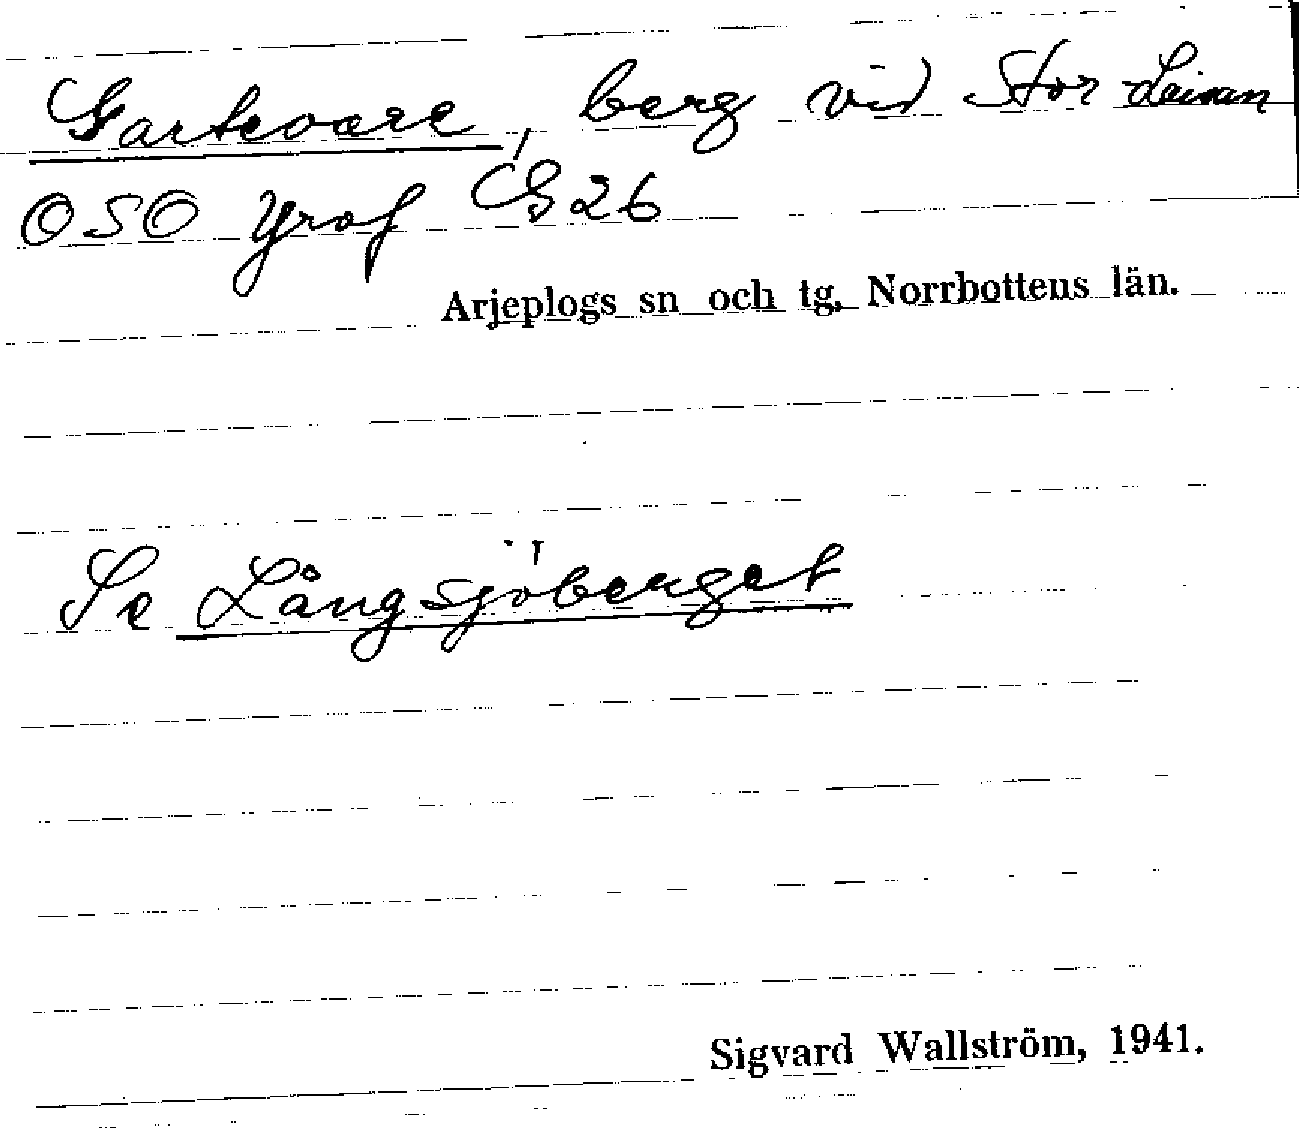 Gartevare, berg vid Stor Laisan
OSO Yraf G 26
Arjeplogs sn och tg, Norrbottens län.
Se Långsjöberget
Sigvard Wallström, 1941.